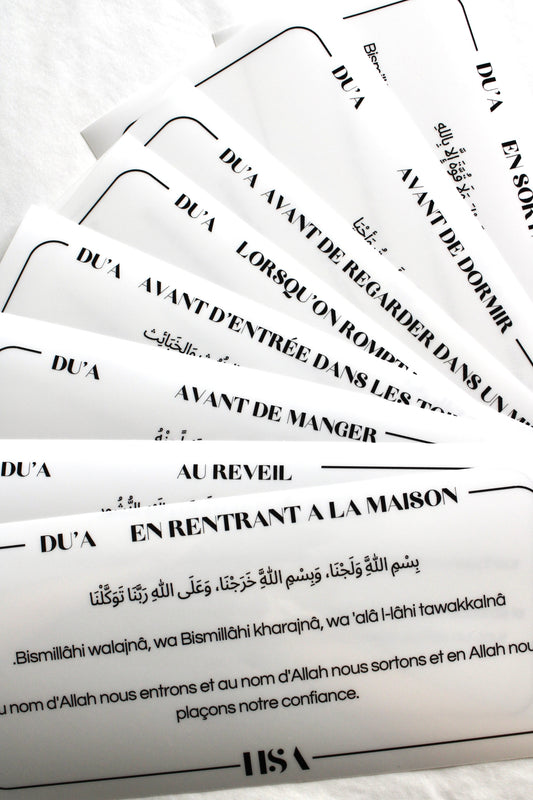 Bismi
DU'A
EN SORT
وَلَا قُوَّةَ إِلَّا بِاللَّهِ
DU'A
AVANT DE DORMIR
DU'A
AVANT DE REGARDER DANS UN MI
DU'A
LORSQU'ON ROMPT
DU'A
AVANT D'ENTRÉE DANS LES TOI
وَالْخَبَائِثِ
DU'A
AVANT DE MANGER
DU'A
AU REVEIL
النُّشُورُ
DU'A
EN RENTRANT A LA MAISON
بِسْمِ اللَّهِ وَلَجْنَا، وَبِسْمِ اللَّهِ خَرَجْنَا، وَعَلَى اللهِ رَبَّنَا تَوَكَّلْنَا
.Bismillâhi walajnâ, wa Bismillâhi kharajnâ, wa 'alâ l-lâhi tawakkalnâ
u nom d'Allah nous entrons et au nom d'Allah nous sortons et en Allah nou
plaçons notre confiance.
HSA